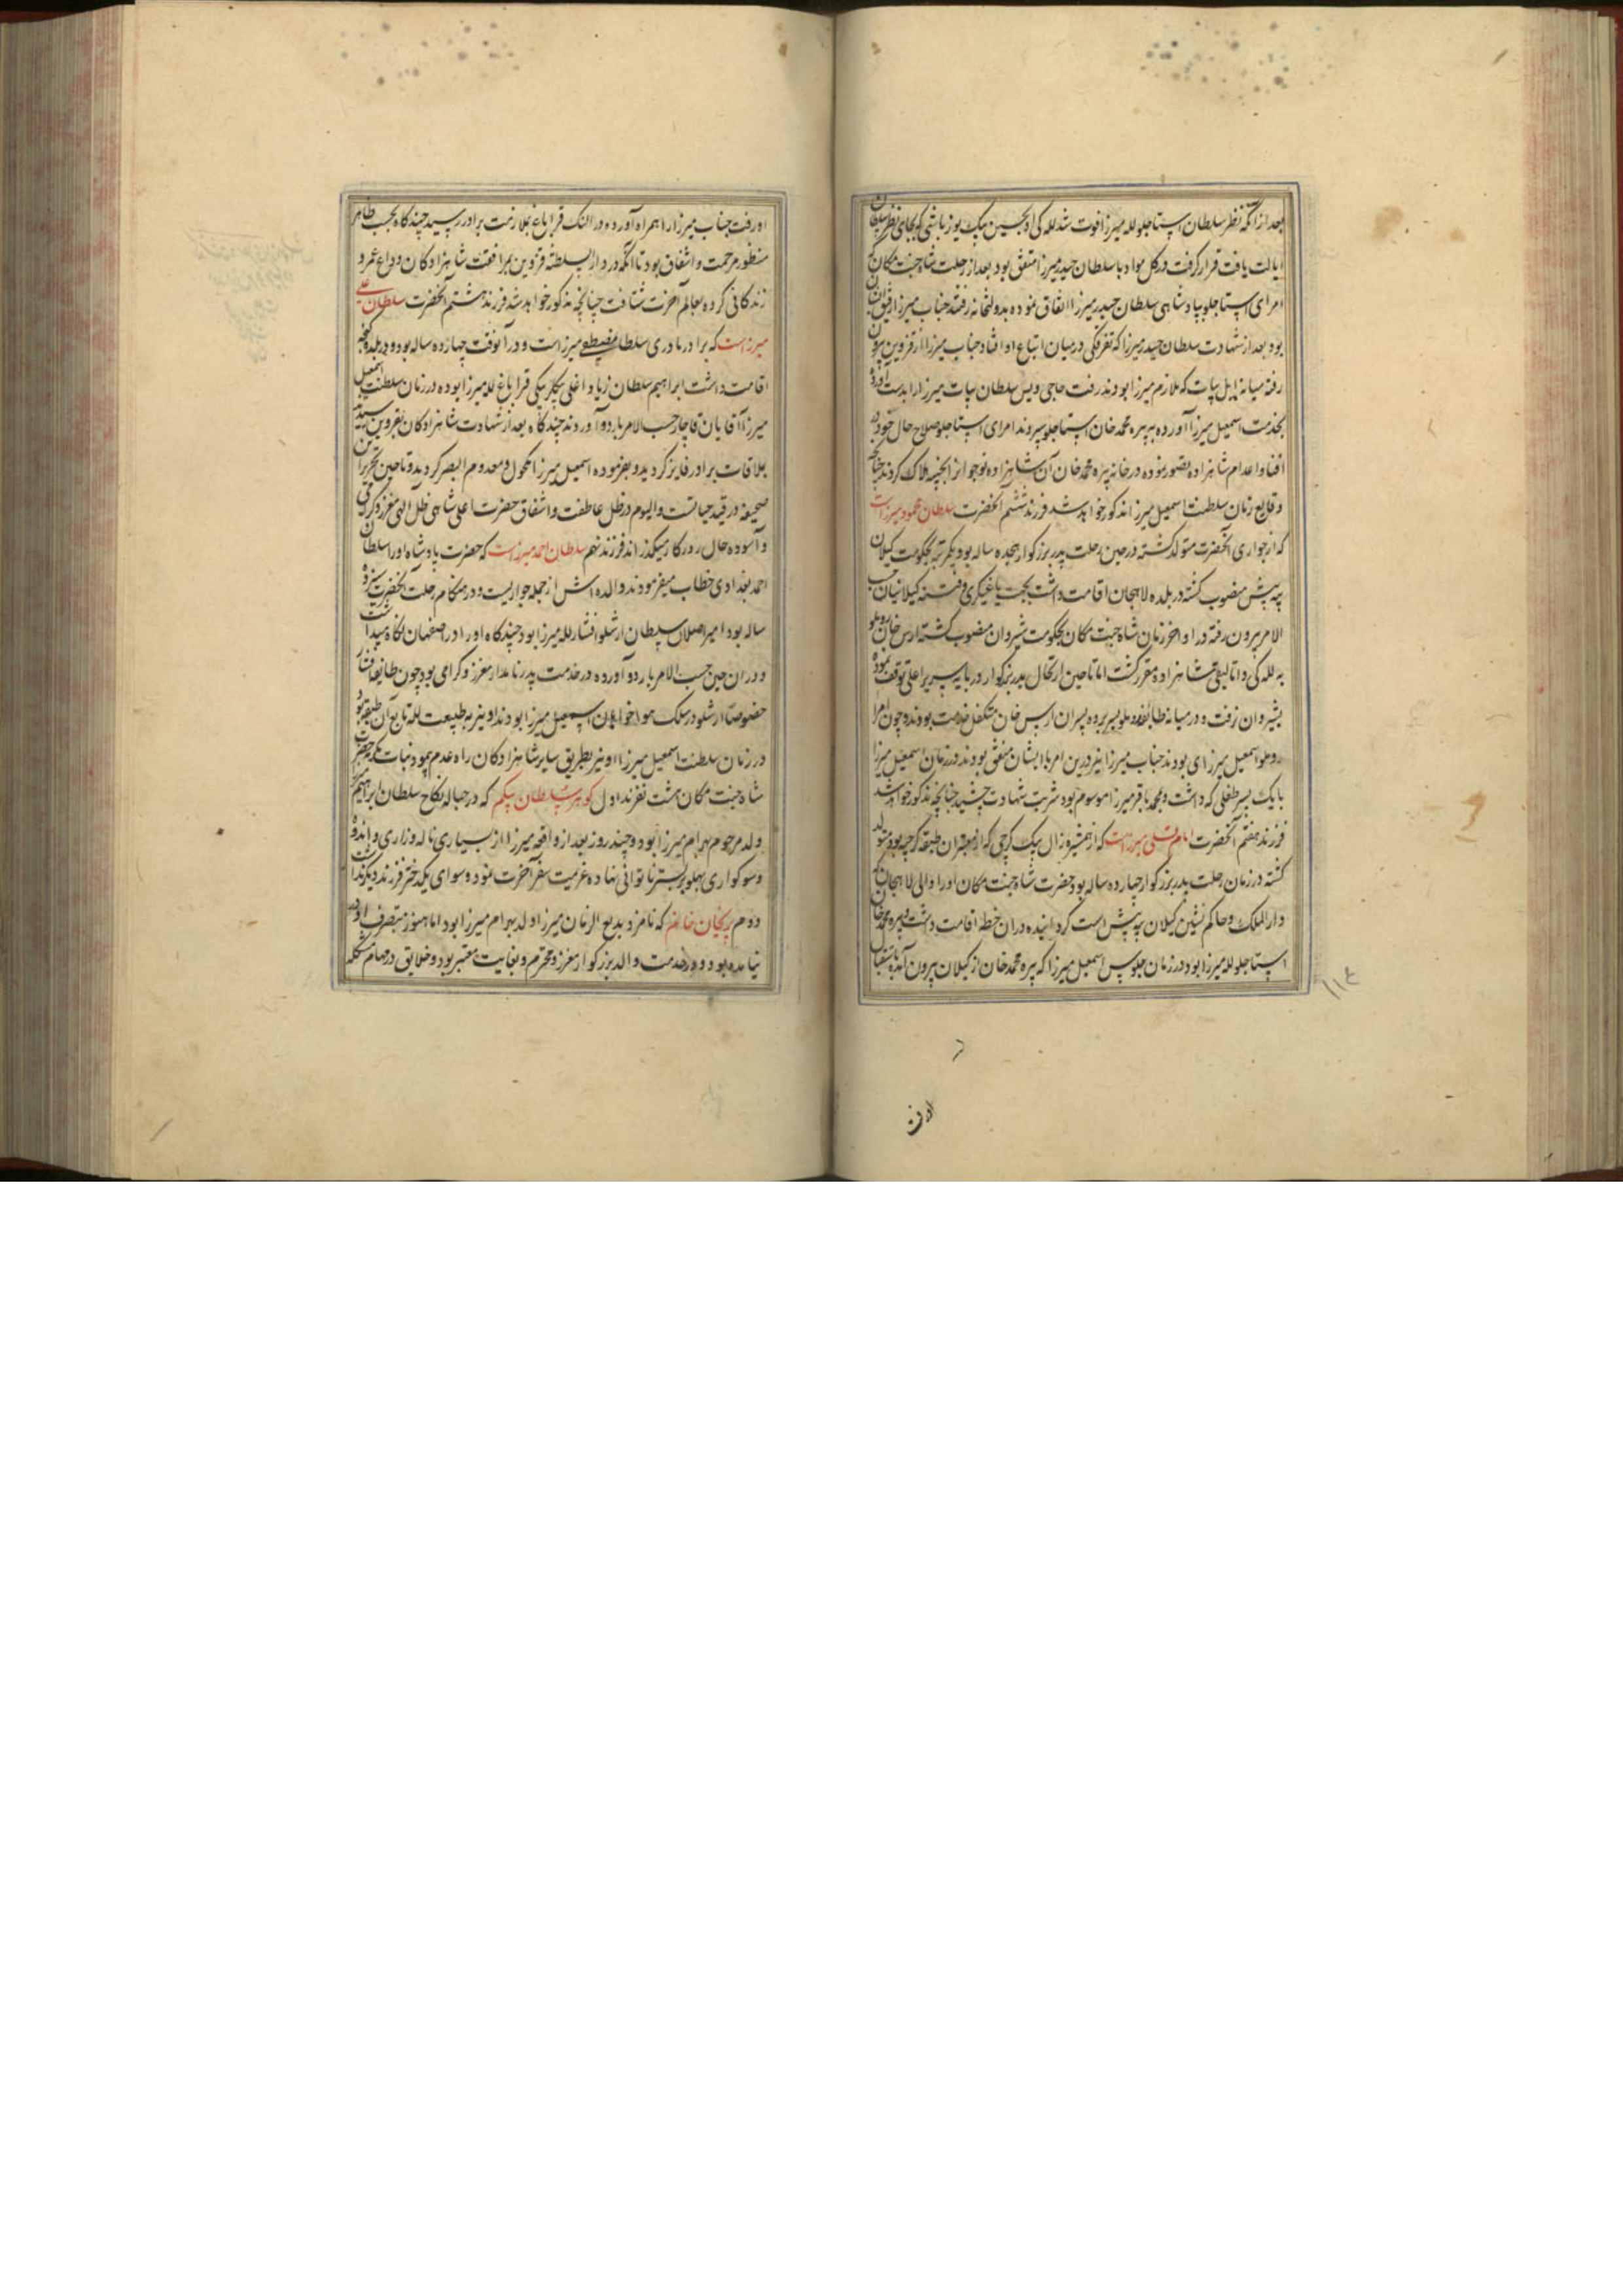 بعد از آنکه نظر سلطان استاجلو لله میرزا فوت شد للـه کی او بحسین بیک یوزباشی که بجای نظر سلطان
ایالت یافت قرار گرفت در کل مواد با سلطان حیدر میرزا متفق بود بعد از رحلت شاه جنت مکان که
امرای استاجلو بپادشاهی سلطان حیدر میرزا اتفاق نموده بدولتخانه رفتند جناب میرزا رفیق ایشان
بود بعد از شهادت سلطان حیدر میرزا که تفرقگی در میان اتباع او افتاد جناب میرزا از قزوین بیرون
رفته میانه ایل بیات که ملازم میرزا بودند رفت حاجی ویس سلطان بیات میرزا را بدست آورده
بخدمت اسمعیل میرزا آورده به پیره محمد خان استاجلو سپردند امرای استاجلو صلاح حال خود در
افنا و اعدام شاهزاده تصور نموده در خانه پیره محمد خان آن شاهزاده نوجوان را بخبه هلاک کردند چنانچه
وقایع زمان سلطنت اسمعیل میرزا مذکور خواهد شد فرزند ششم آنحضرت سلطان محمود میرزاست
که از جواری آنحضرت متولد گشته در حین رحلت پدر بزرگوار هجده ساله بود یکمرتبه بحکومت گیلان
بیه پیش منصوب گشته در بلده لاهجان اقامت داشت بجهت یاغیگری و فتنه گیلانیان حسب
الامر بیرون رفته در اواخر زمان شاه جنت مکان بحکومت شیروان منصوب گشته ارس خان روملو
به للـه کی و اتالیقی شاهزاده مقرر گشت اما تا حین ارتحال پدر بزرگوار در پایه سریر اعلی توقف نموده
بشیروان نرفت و در میانه طایفه روملو بسر برده پسران ارس خان متکفل خدمت بودند و چون امرا
روملو اسمعیل میرزای بودند جناب میرزا نیز درین امر با ایشان متفق بودند در زمان اسمعیل میرزا
با یک پسر طفلی که داشت و محمد باقر میرزا موسوم بود شربت شهادت چشید چنانچه مذکور خواهد شد
فرزند هفتم آنحضرت امام قلی میرزاست که از همشیره زال بیک گرجی که از معتبران طبقه گرجیه بود متولد
گشته در زمان رحلت پدر بزرگوار چهارده ساله بود حضرت شاه جنت مکان او را والی لاهجان که
دار الملک و حاکم نشین گیلان بیه پیش است گردانیده در ان خطه اقامت داشت و پیره محمد خان
استاجلو لله میرزا بود در زمان جلوس اسمعیل میرزا که پیره محمد خان از گیلان بیرون آمده باستقبال
او رفت جناب میرزا را همراه آورده در النک قراباغ بملازمت برادر رسید چند گاه بحسب ظاهر
منظور مرحمت و اشفاق بود تا آنکه در دار السلطنه قزوین بمرافقت شاهزادگان وداع عمر و
زندگانی کرده بعالم آخرت شتافت چنانچه مذکور خواهد شد فرزند هشتم آنحضرت سلطان علی
میرزاست که برادر مادری سلطان مصطفی میرزاست و در آنوقت چهارده ساله بود و در بلده گنجه
اقامت داشت ابراهیم سلطان زیاد اغلی بیگلربیگی قراباغ لله میرزا بوده در زمان سلطنت اسمعیل
میرزا آقایان قاجار حسب الامر باردو آوردند چند گاه بعد از شهادت شاهزادگان بقزوین رسیده
بملاقات برادر فایز گردید و بفرموده اسمعیل میرزا مکحول و معدوم البصر گردید و تا حین تحریر این
صحیفه در قید حیاتست و الیوم در ظل عاطفت و اشفاق حضرت اعلی شاهی ظل الهی معزز و گرامی
و آسوده حال روزگار میگذراند فرزند نهم سلطان احمد میرزاست که حضرت پادشاه او را سلطان
احمد بغدادی خطاب میفرمودند والده اش از جمله جواریست و در هنگام رحلت آنحضرت سیزده
ساله بود امیر اصلان سلطان ارشلو افشار لله میرزا بود چند گاه او را در اصفهان نگاه میداشت
و در ان حین حسب الامر باردو آورده در خدمت پدر نامدار معزز و گرامی بود چون طایفه افشار
خصوصا ارشلو در سلک هواخواهان اسمعیل میرزا بودند او نیز به طبیعت لله تابع آن طبقه بود
در زمان سلطنت اسمعیل میرزا او نیز بطریق سایر شاهزادگان راه عدم پیمود بنات مکرمه حضرت
شاه جنت مکان هشت نفرند اول گوهر سلطان بیگم که در حباله نکاح سلطان ابراهیم میرزا
ولد مرحوم بهرام میرزا بود و چند روز بعد از واقعه میرزا از بسیاری ناله و زاری و اندوه
و سوکواری پهلو بر بستر ناتوانی نهاده عزیمت سفر آخرت نمود و سوای یکدختر فرزند دیگر نداشت
دوم پریخان خانم که نامزد بدیع الزمان میرزا ولد بهرام میرزا بود اما هنوز بتصرف او در
نیامده بود و در خدمت والد بزرگوار معزز و محترم و بغایت معتبر بود و خلایق در مهام مشکله
۱۱۴
اورفت